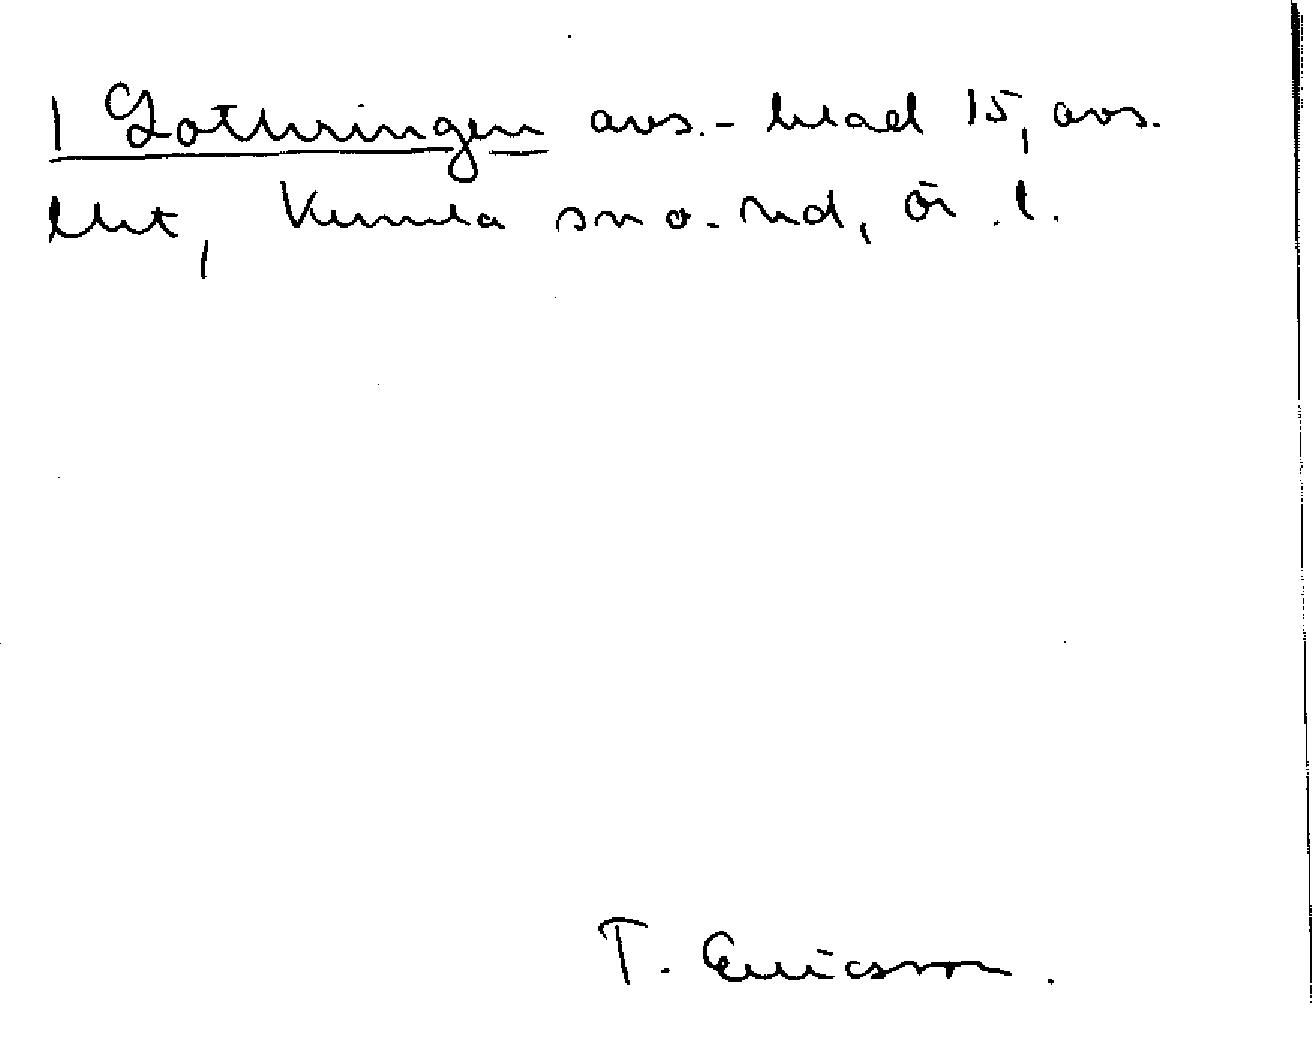 1 Lothringen avs.-blad 15, avs.
litt, Kumla sn o. hd, Ör. l.
T. Ericsson.